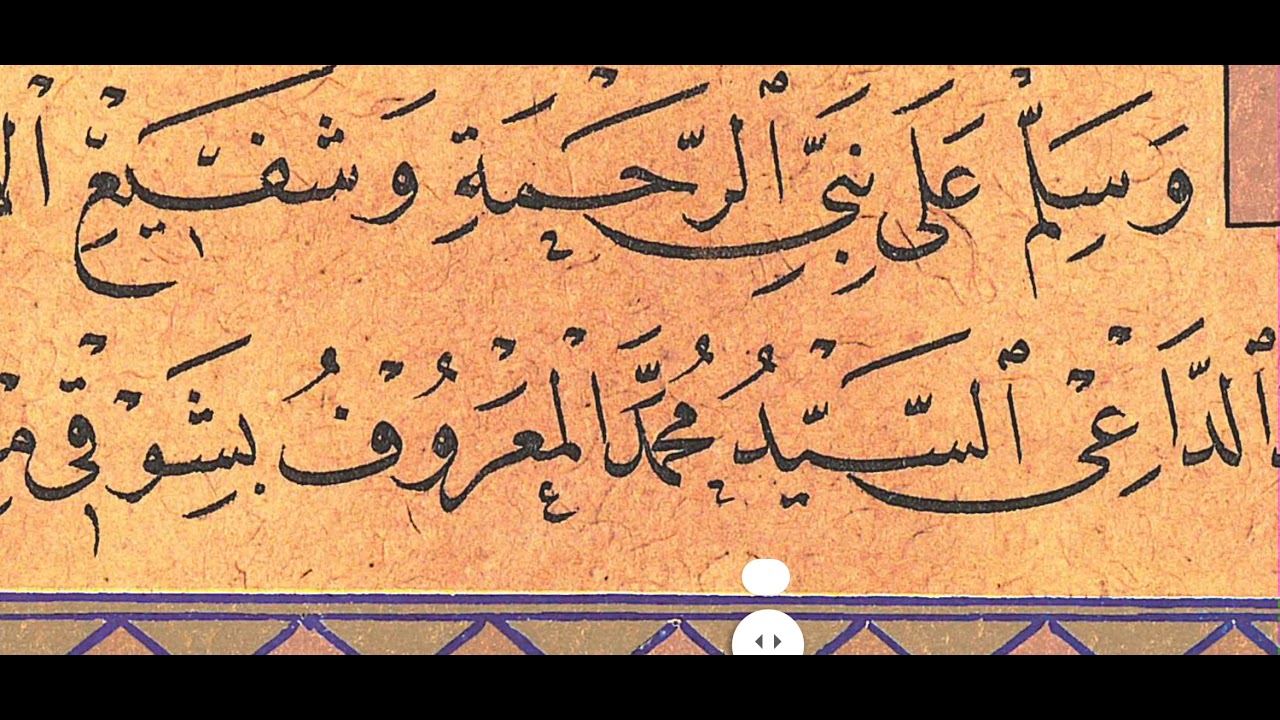 وَسَلِّمْ عَلَى نَبِيِّ ٱلرَّحْمَةِ وَشَفِيْعِ
ٱلدَّاعِيْ ٱلسَّيِّدُ مُحَمَّدُ الْمَعْرُوْفُ بِشَوْقِيْ